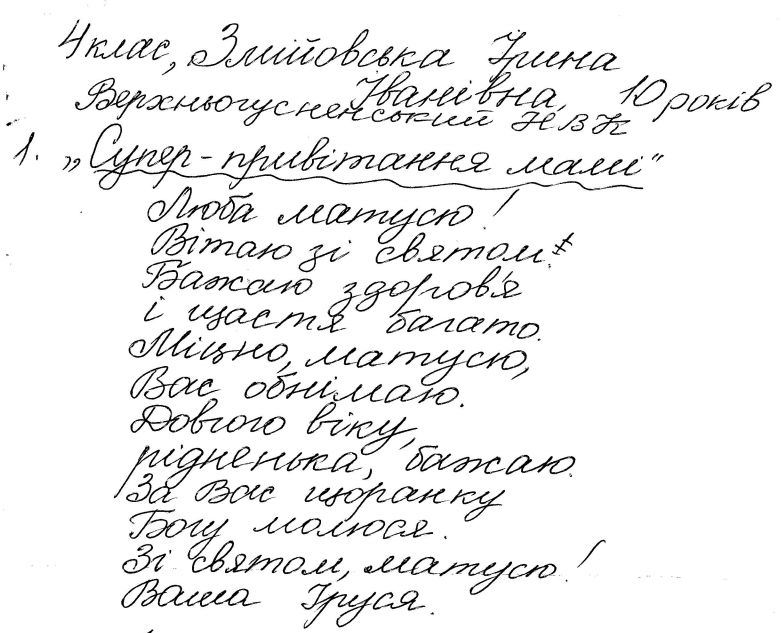 4 клас, Змійовська Ірина
Іванівна, 10 років
Верхньогусненський НВК
1. „Супер-привітання мамі"
Люба матусю!
Вітаю зі святом.
Бажаю здоров'я
і щастя багато.
Міцно, матусю,
Вас обнімаю.
Довгого віку,
рідненька, бажаю.
За Вас щоранку
Богу молюся.
Зі святом, матусю!
Ваша Іруся.